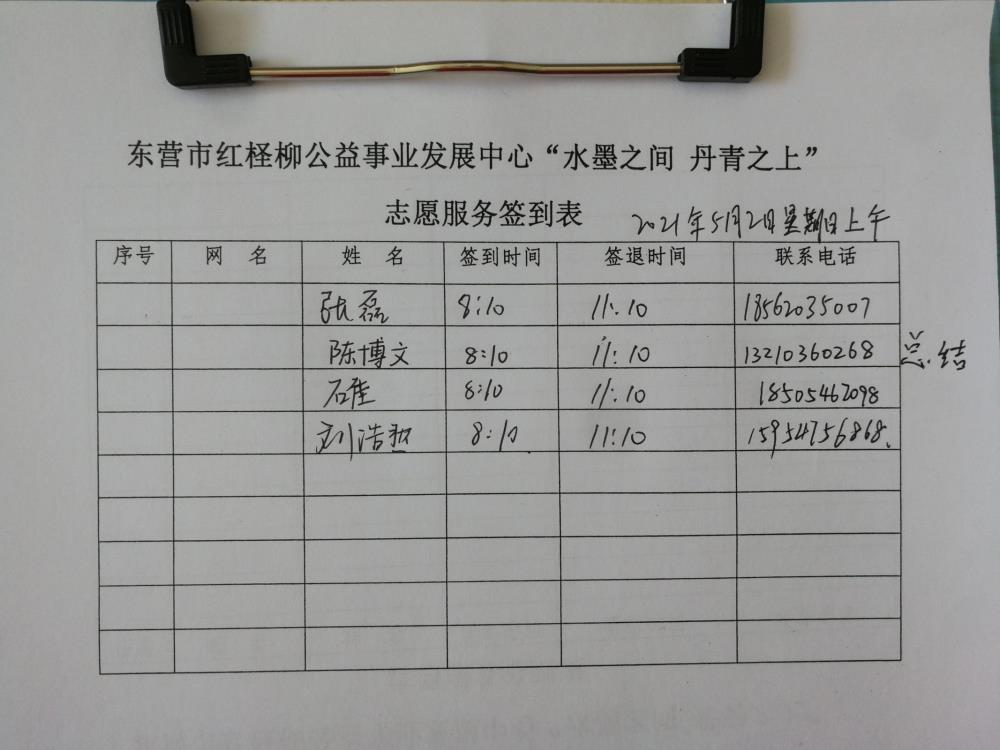 东营市红柽柳公益事业发展中心“水墨之间 丹青之上”
志愿服务签到表 2021年5月2日星期日上午
序号 网 名 姓 名 签到时间 签退时间 联系电话
张磊 8:10 11:10 18562035007
陈博文 8:10 11:10 13210360268 总结
石佳 8:10 11:10 18505462098
刘浩 8:10 11:10 15954756868